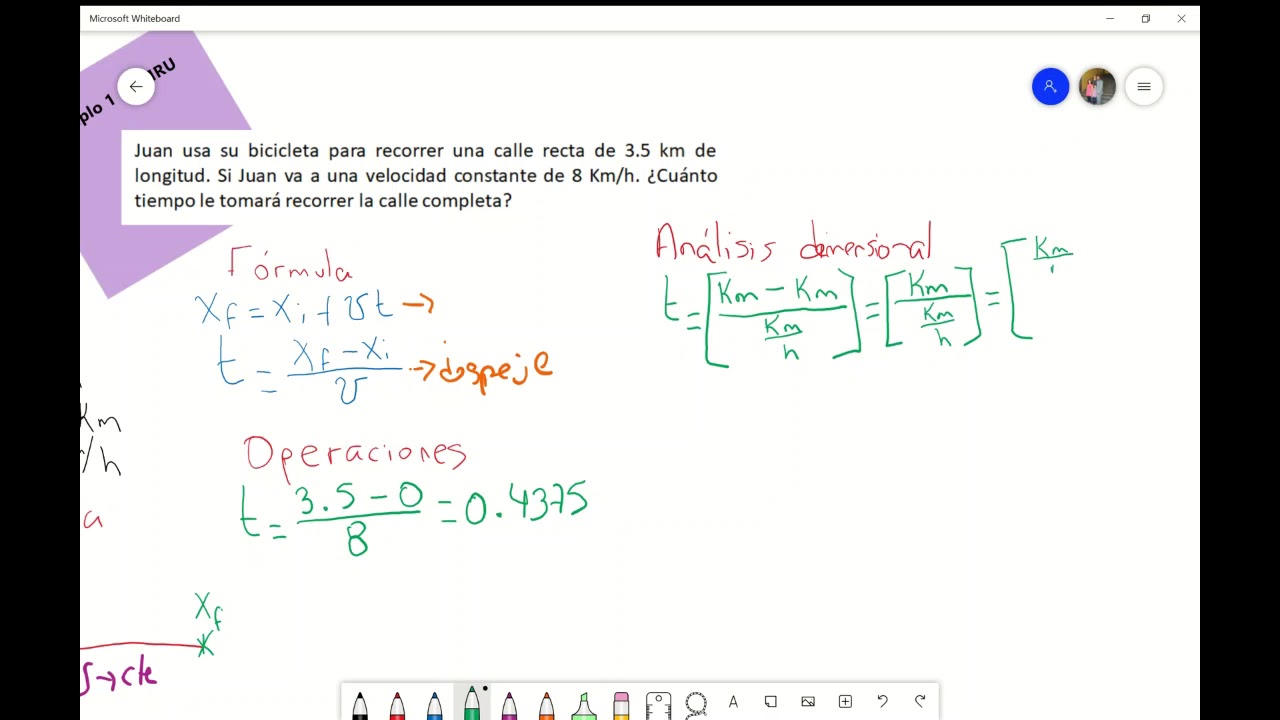 Microsoft Whiteboard
plo 1 IRU
Juan usa su bicicleta para recorrer una calle recta de 3.5 km de
longitud. Si Juan va a una velocidad constante de 8 Km/h. ¿Cuánto
tiempo le tomará recorrer la calle completa?
Fórmula
Xf = Xi + vt →
t = (Xf - Xi)/v → despeje
Análisis dimensional
t = [(Km - Km)/(Km/h)] = [Km/(Km/h)] = [Km/
Km
/h
a
Operaciones
t = (3.5 - 0)/8 = 0.4375
Xf
x
→ cte
A